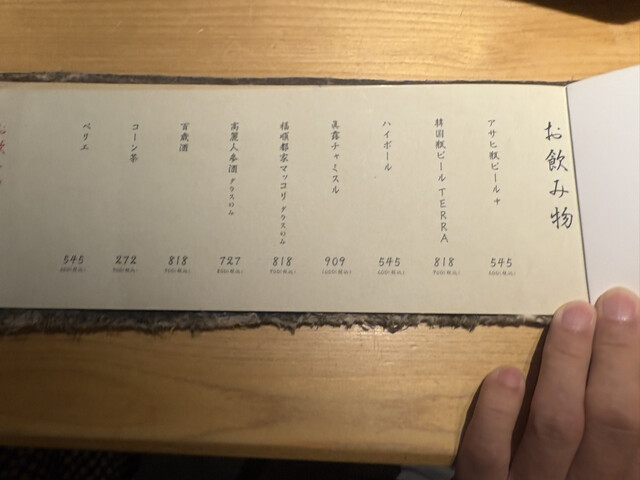 お飲み物
アサヒ瓶ビール 中
545
600(税込)
韓国瓶ビール TERRA
818
900(税込)
ハイボール
545
600(税込)
眞露チャミスル
909
1000(税込)
福順都家マッコリ グラスのみ
818
900(税込)
高麗人参酒 グラスのみ
727
800(税込)
百歳酒
818
900(税込)
コーン茶
272
300(税込)
ペリエ
545
600(税込)